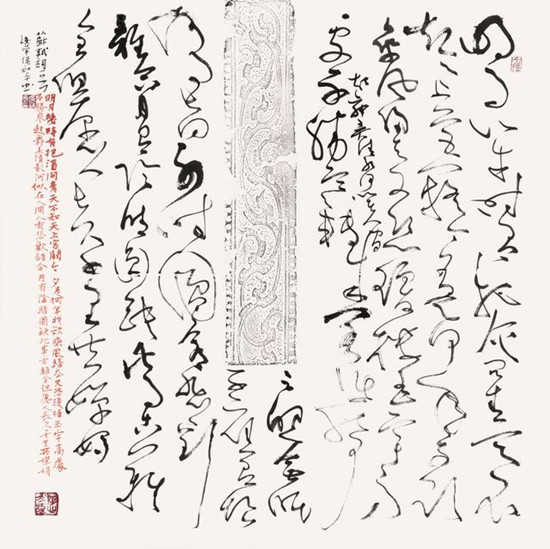 明月幾時有把酒問青天不
知天上宮闕今夕是何年我欲
乘風歸去又恐瓊樓玉宇高
起舞弄清影何似在人間
處不勝寒轉朱閣低綺户
照無眠
不應有恨
何事長向別時圓人有悲歡
離合月有陰晴圓缺此事古難
全但願人長久千里共嬋娟
明月幾時有把酒問青天不知天上宮闕今夕是何年我欲乘風歸去又恐瓊樓玉宇高處
不勝寒起舞弄清影何似在人間人有悲歡離合月有陰晴圓缺此事古難全但願人長久千里共嬋娟
蘇軾詞